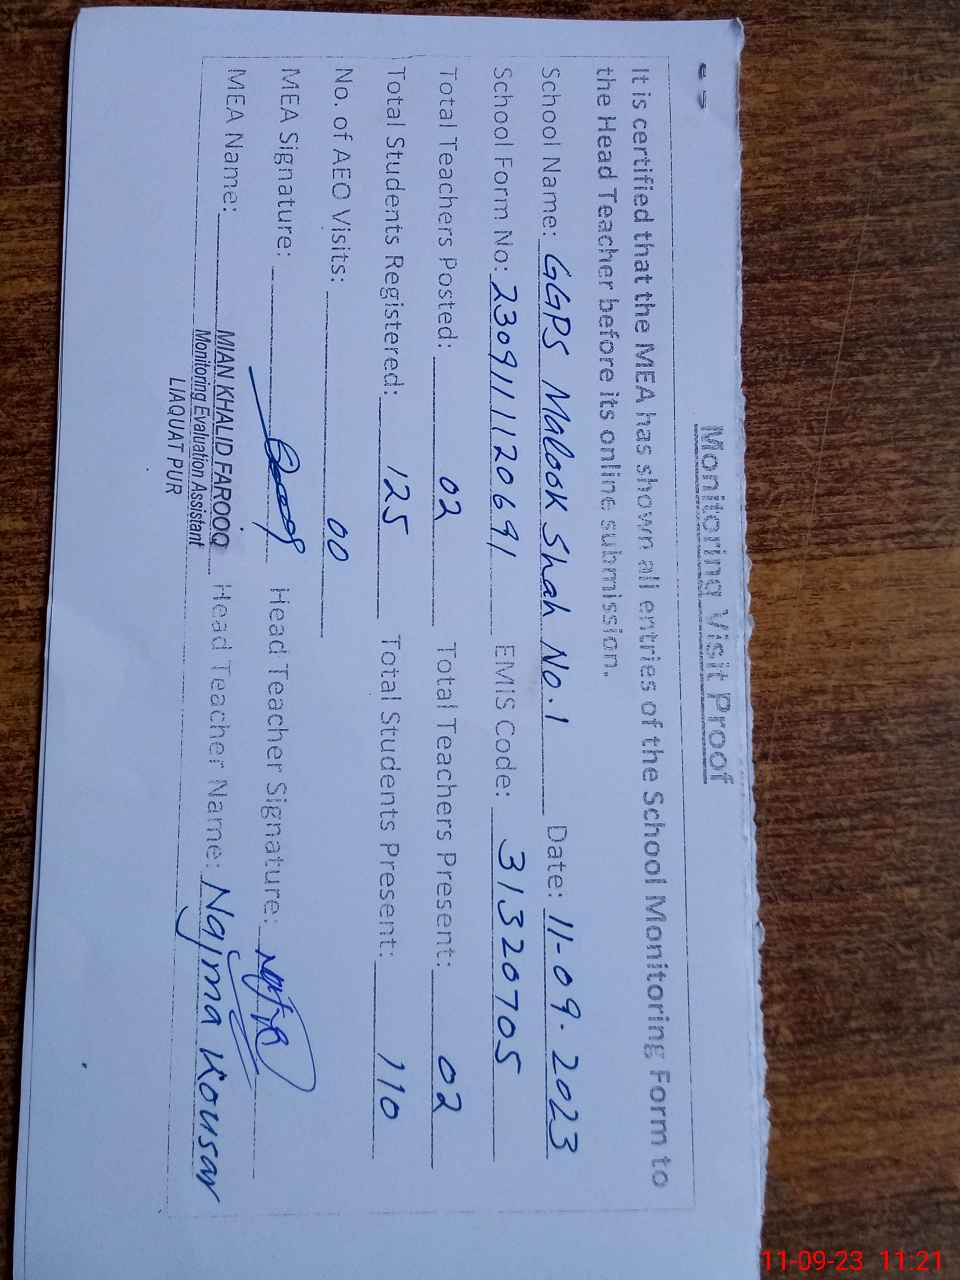 Monitoring Visit Proof
It is certified that the MEA has shown all entries of the School Monitoring Form to
the Head Teacher before its online submission.
School Name: GGPS Malook Shah No.1 Date: 11-09-2023
School Form No: 230911120691 EMIS Code: 31320705
Total Teachers Posted: 02 Total Teachers Present: 02
Total Students Registered: 125 Total Students Present: 110
No. of AEO Visits: 00
MEA Signature: Head Teacher Signature:
MEA Name: MIAN KHALID FAROOQ Head Teacher Name: Najma Kousar
Monitoring Evaluation Assistant
LIAQUAT PUR
11-09-23 11:21